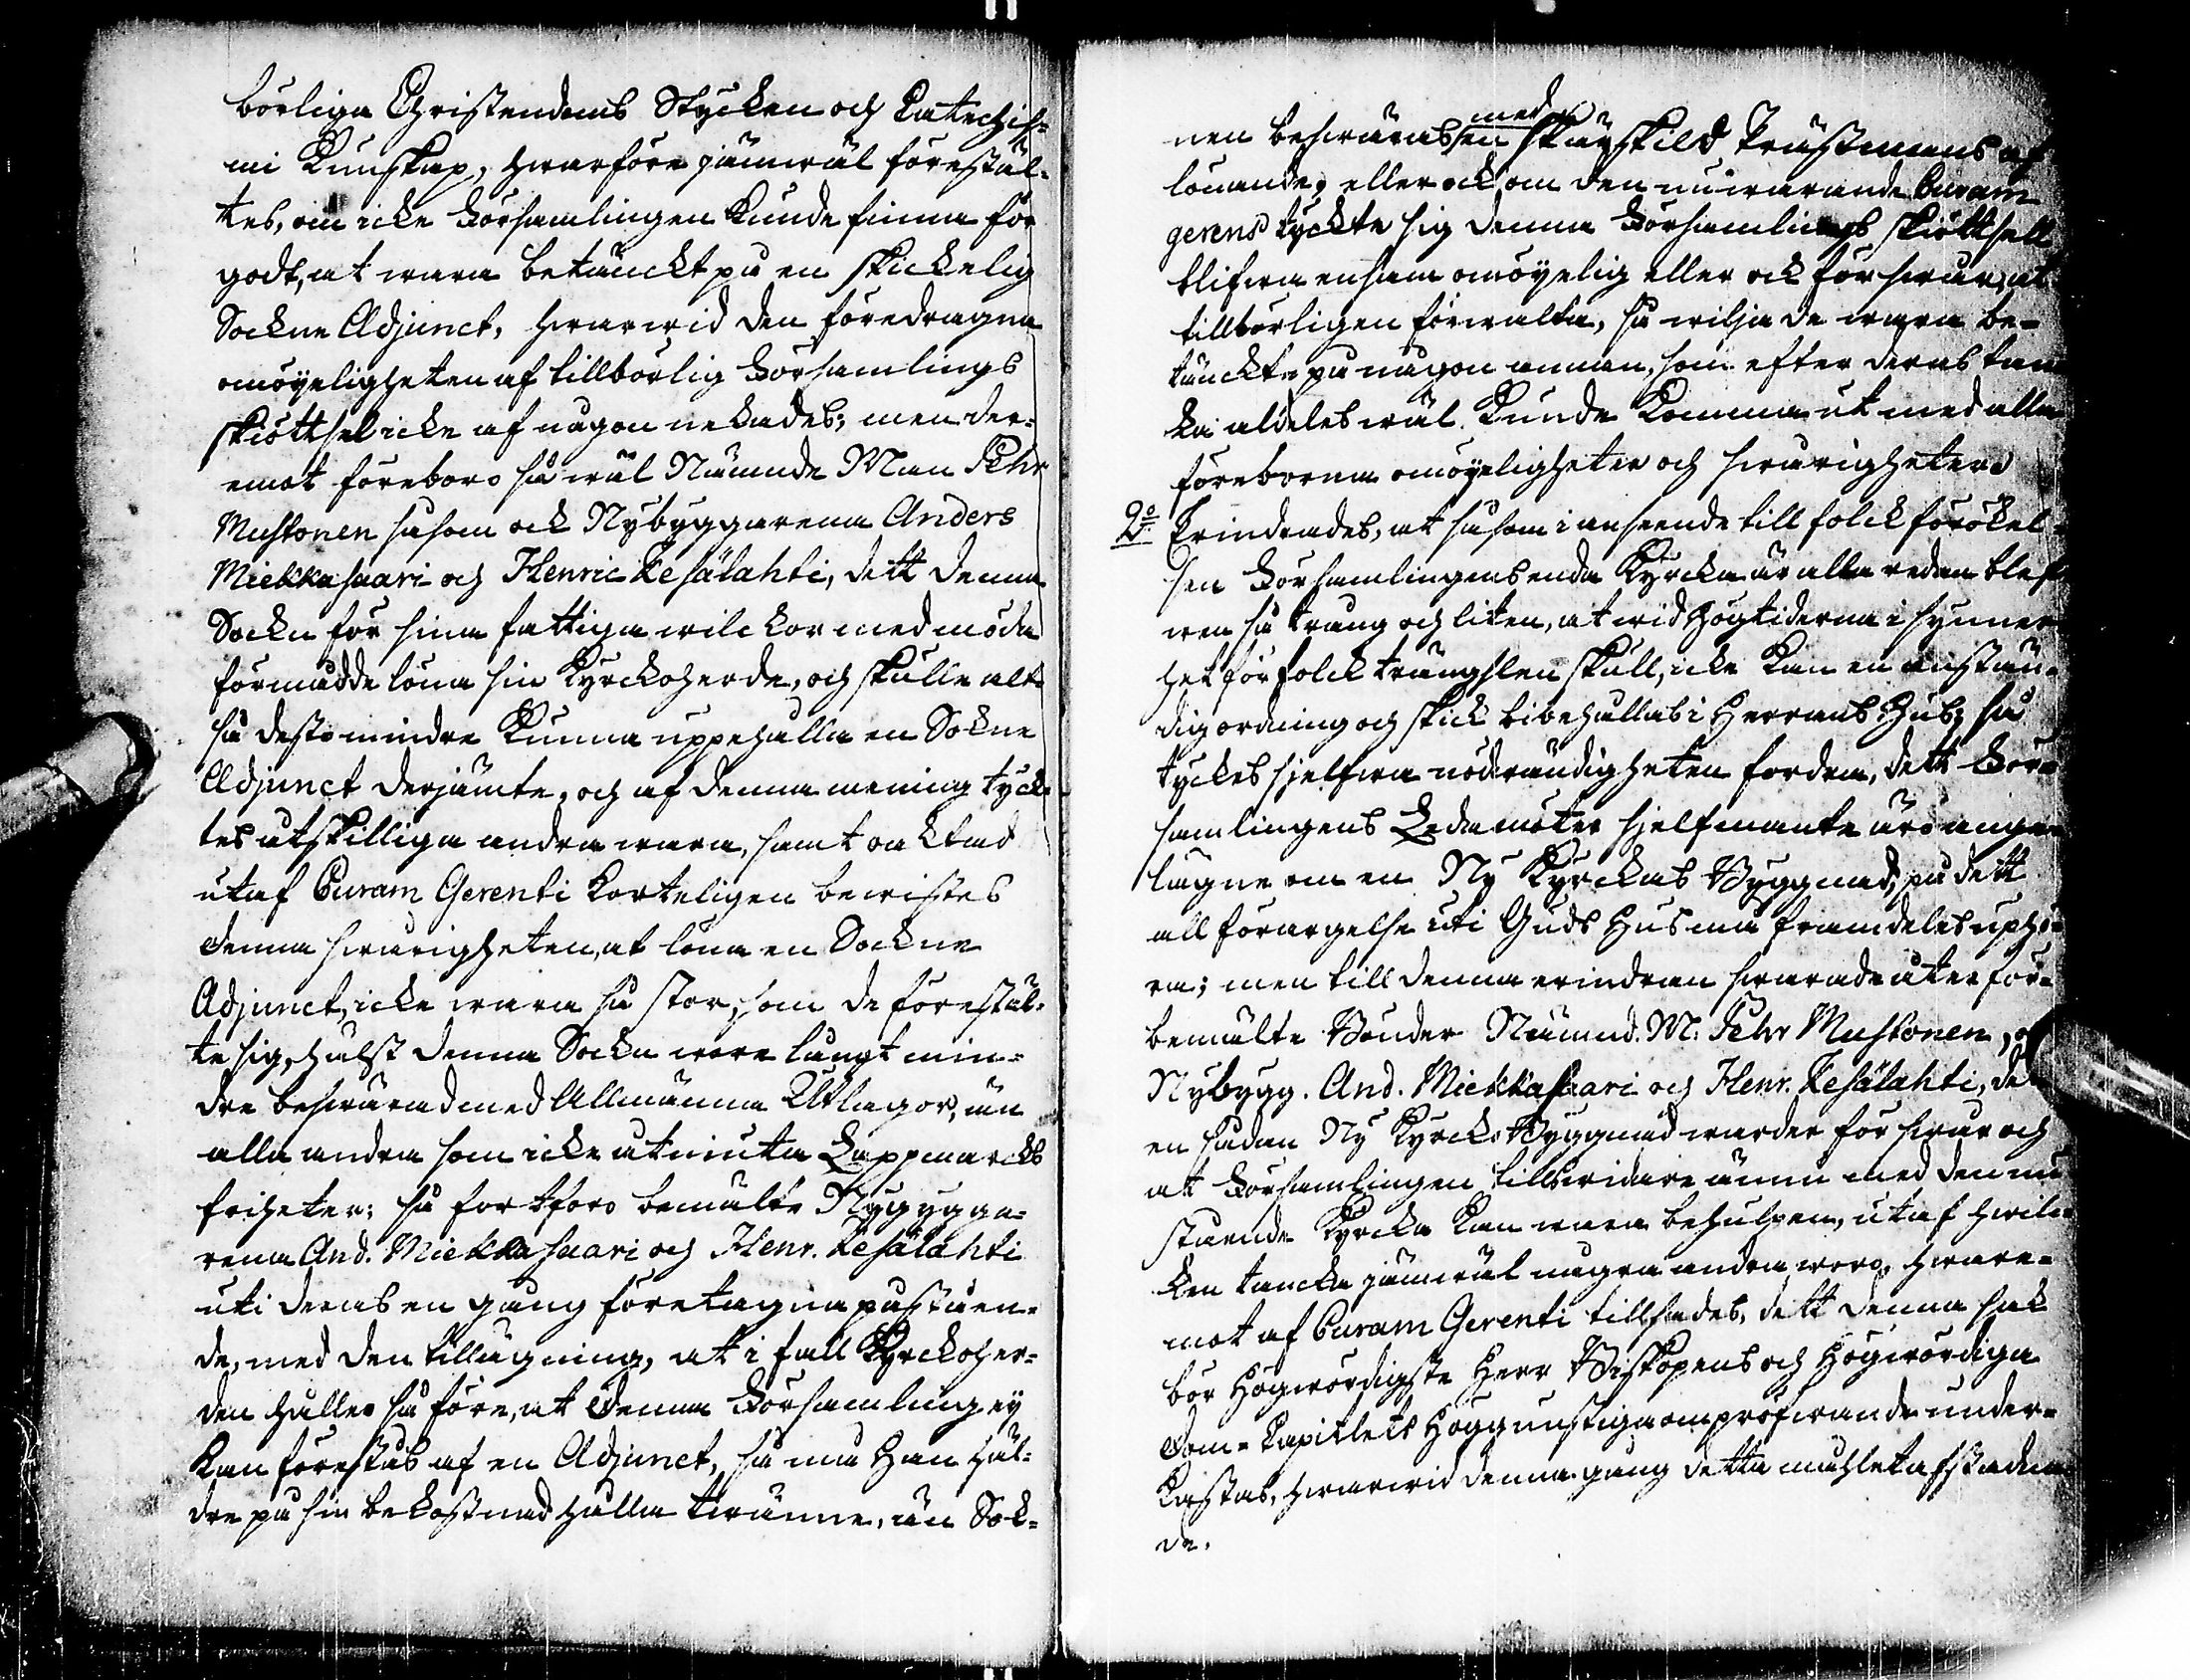 börliga Christendoms Stycken och Catechis=
mi Kunskap, hwarföre jämwäl förestäl=
tes, om icke Församlingen kunde finna för
godt, at wara betänckt på en skickelig
Sockne Adjunct, hwarwid den föredragna
omöyeligheten af tillbörlig Församlings
skiöttsel icke af någon nekades; men der=
emot föreboro så wäl Nämnde Man Pehr
Mustonen såsom ock Nybyggarena Anders
Miekkasaari och Henric Kesälahti, dett denna
Sockn för sina fattiga wilckor med möda
förmådde löna sin Kyrckoherde, och skulle alt=
så desto mindre kunna uppehålla en Sokne
Adjunct derjämte, och af denna mening tyck=
tes åtskilliga andra wara, samt oacktad
utaf Curam Gerenti korteligen bewistes
denna swårigheten, at löna en Sockne
Adjunct, icke wara så stor, som de förestäl=
te sig, hälst denna Sockn wore långt min=
dre beswärad med Allmänna Utlagor, än
alla andra som icke åtniuta Lappmarcks
friheter; så fortforo bemälte Nybygga=
rena And. Miekkasaari och Henr. Kesälahti
uti deras en gång företagna påståen=
de, med den tilläggning, at i fall Kyrckoher=
den håller så före, at denna Församling ey
kan förestås af en Adjunct, så må Han häl=
dre på sin bekostnad hålla twänne, än Sok=
nen beswäras med en särskild Prästmans af=
lönande; eller ock om den nuwarande Curam
gerens tyckte sig denna Församlings skiöttsell
blifwa ensam omöyelig eller ock för swår, at
tillbörligen förwalta, så wilja de wara be=
tänckte på någon annan, som efter deras tan
ka aldeles wäl kunde komma ut med alla
föreborna omöyeligheter och swårigheter.
2o Erindrades, at såsom i anseende till folck förökel=
sen Församlingens enda Kyrcka är alla redan blef
wen så trång och liten, at wid Högtiderna i synner
het för folck trängslen skull, icke kan en anstän=
dig ordning och skick bibehållas i Herrans Hus; så
tyckes sjelfwa nödwändigheten fordra, dett För=
samlingens Ledamöter sjelfmante äro ange=
lägne om en Ny Kyrckas Byggnad, på dett
all förargelse uti Guds Hus må framdeles uphö=
ra; men till denna erindran swarade åter för=
bemälte Bönder Nämnd. M. Pehr Mustonen, o
Nybygg. And. Miekkasaari och Henr. Kesälahti, de
en sådan Ny Kyrcko Byggnad warder för swår och
at Församlingen tillswidare ännu med den nu
stående Kyrcka kan wara behulpen, utaf hwil=
ken tancka jämwäl några andra woro, hware=
mot af Curam Gerenti tillsades, dett denna sak
bör Högwördigste Herr Biskopens och Högwördiga
Dom=Capitlets Höggunstiga ompröfwande under=
kastas, hwarwid denna gång detta målet afstadna
de.